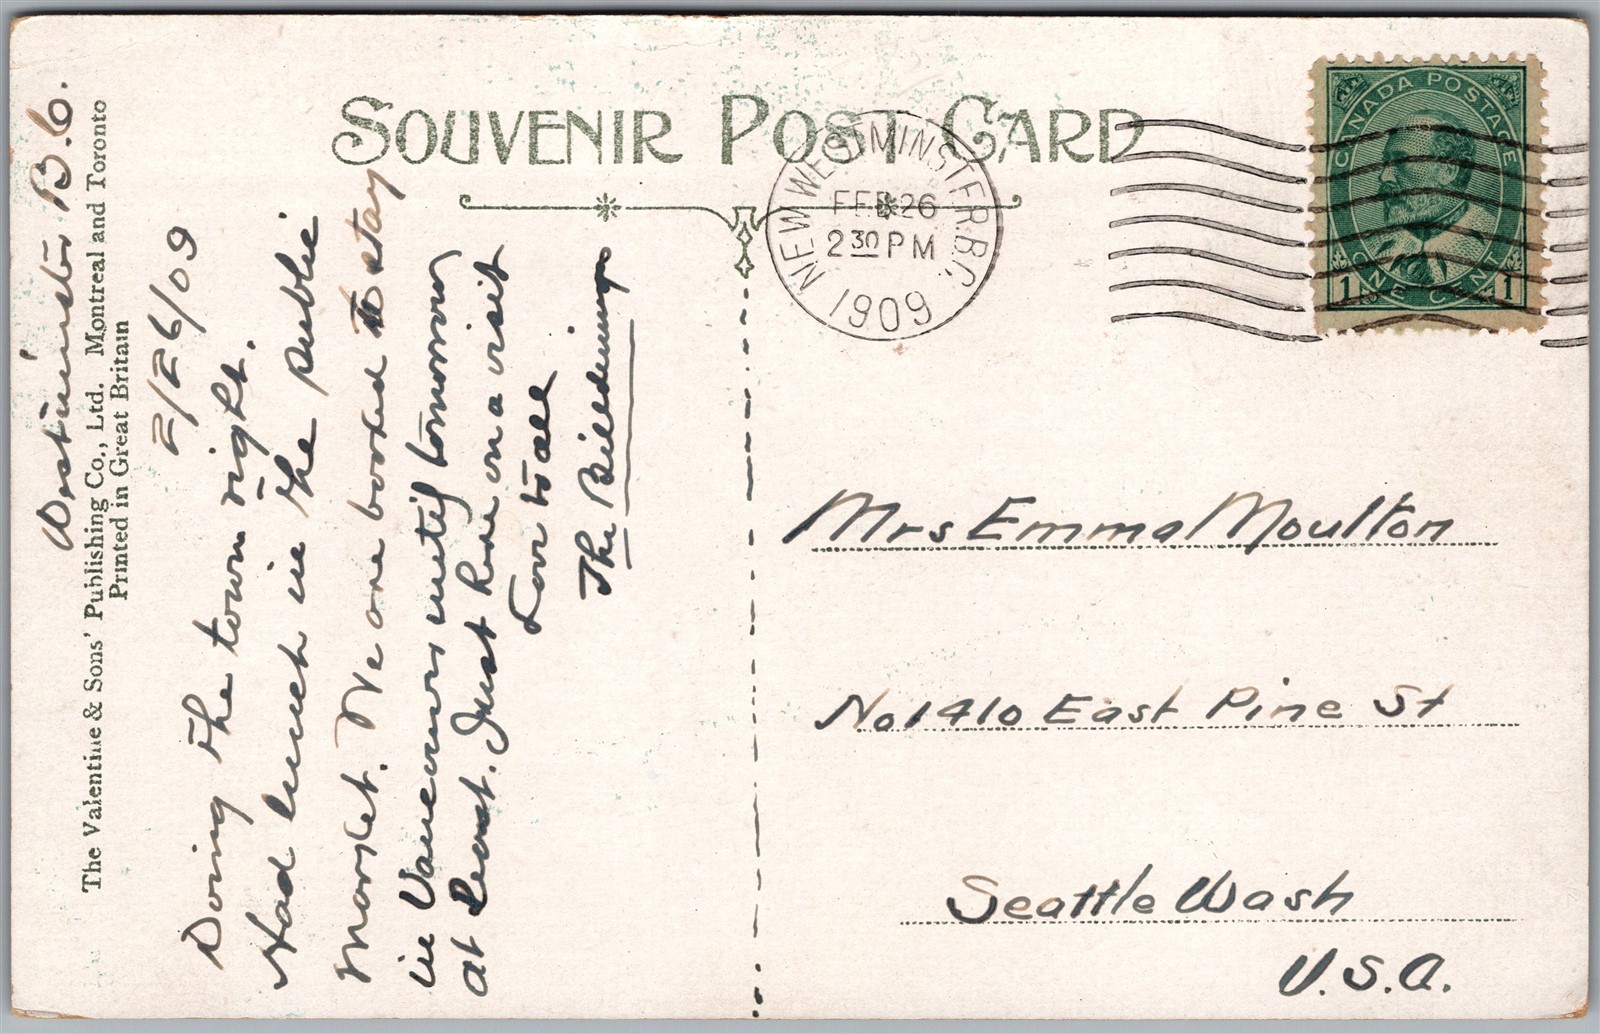 SOUVENIR POST CARD
NEW WESTMINSTER. B.C.
FEB 26
2 30 PM
1909
CANADA POSTAGE
1 ONE CENT 1
Westminster B.C.
The Valentine & Sons' Publishing Co., Ltd. Montreal and Toronto
Printed in Great Britain
2/26/09
Doing the town right.
Had lunch in the public
market. We are booked to stay
in Vancouver until tomorrow
at least. Just here on a visit
Love to all
The
Mrs Emma Moulton
No 1410 East Pine St
Seattle Wash
U.S.A.